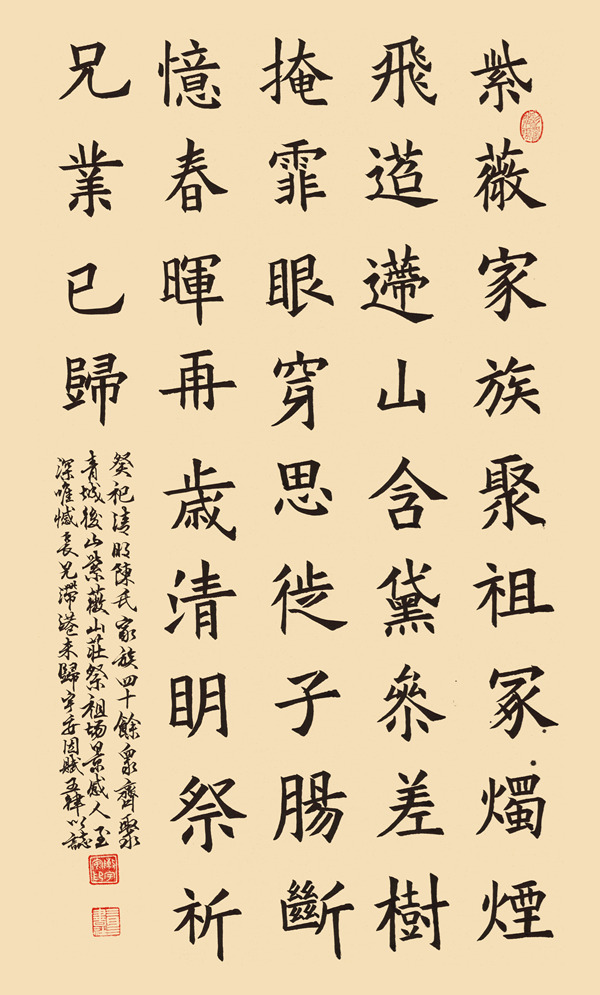 紫薇家族聚祖冢燭煙
飛迢遰山含黛參差樹
掩霏眼穿思徙子腸斷
憶春暉再歲清明祭祈
兄業已歸
癸祀清明陳氏家族四十餘衆齊聚
青城後山紫薇山莊祭祖場景感人至
深唯憾長兄滯港未歸因賦五律以誌